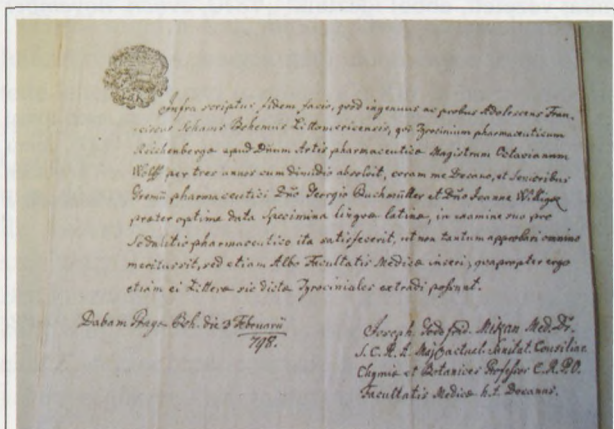 Infra scriptus fidem facio, quod ingenuus ac probus Adolescens Fran-
ciscus Bohemus Littomericensis, qui Tyrocinium pharmaceuticum
Reichenbergæ apud Dnum Artis pharmaceuticæ Magistrum Octavianum
Wolff per tres annos cum dimidio absolvit, coram me Decano, et Senioribus
Gremii pharmaceutici Dno Georgio Buchmüller et Dno Joanne
præter optime data specimina linguæ latinæ, in examine suo pro
Sodalitio pharmaceutico ita satisfecerit, ut non tantum approbari omnino
meritus sit, sed etiam Albo Facultatis Medicæ inseri, quapropter ergo
etiam ei Litteræ sic dictæ Tyrociniales extradi possunt.
Dabam Pragæ Boh. die 3 Februarii
798.
Joseph. Godofrid. Mikan Med. Dr.
S.C.R.A. Maj. actual. Sanitat. Consiliar.
Chymiæ et Botanices Professor C.R.P.O.
Facultatis Medicæ h.t. Decanus.